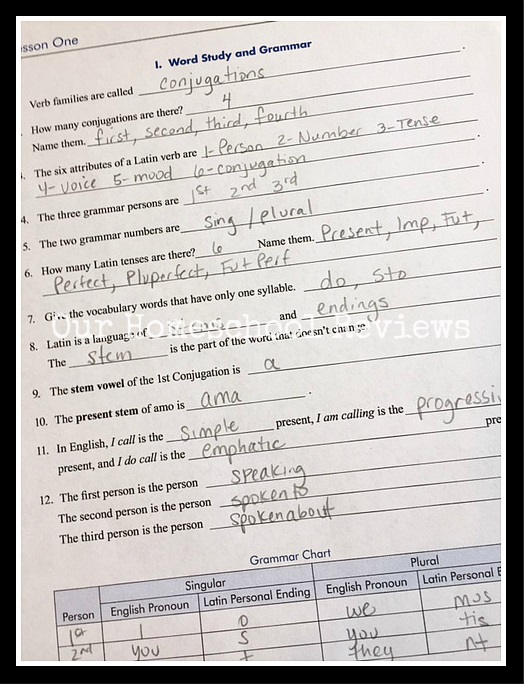 sson One
I. Word Study and Grammar
Verb families are called conjugations.
How many conjugations are there? 4
Name them. first, second, third, fourth
The six attributes of a Latin verb are 1-Person 2-Number 3-Tense
4-voice 5-mood 6-conjugation
4. The three grammar persons are 1st 2nd 3rd
5. The two grammar numbers are sing/plural
6. How many Latin tenses are there? 6 Name them. Present, Imp, Fut,
Perfect, Pluperfect, Fut Perf
7. Give the vocabulary words that have only one syllable. do, sto
8. Latin is a language of and endings
Our Homeschool Reviews
The stem is the part of the word that doesn't change.
9. The stem vowel of the 1st Conjugation is a
10. The present stem of amo is ama.
11. In English, I call is the simple present, I am calling is the progressi
present, and I do call is the emphatic pre
12. The first person is the person speaking
The second person is the person spoken to
The third person is the person spoken about
Grammar Chart
Singular Plural
Person English Pronoun Latin Personal Ending English Pronoun Latin Personal E
1st I o we mus
2nd you s you tis
t they nt